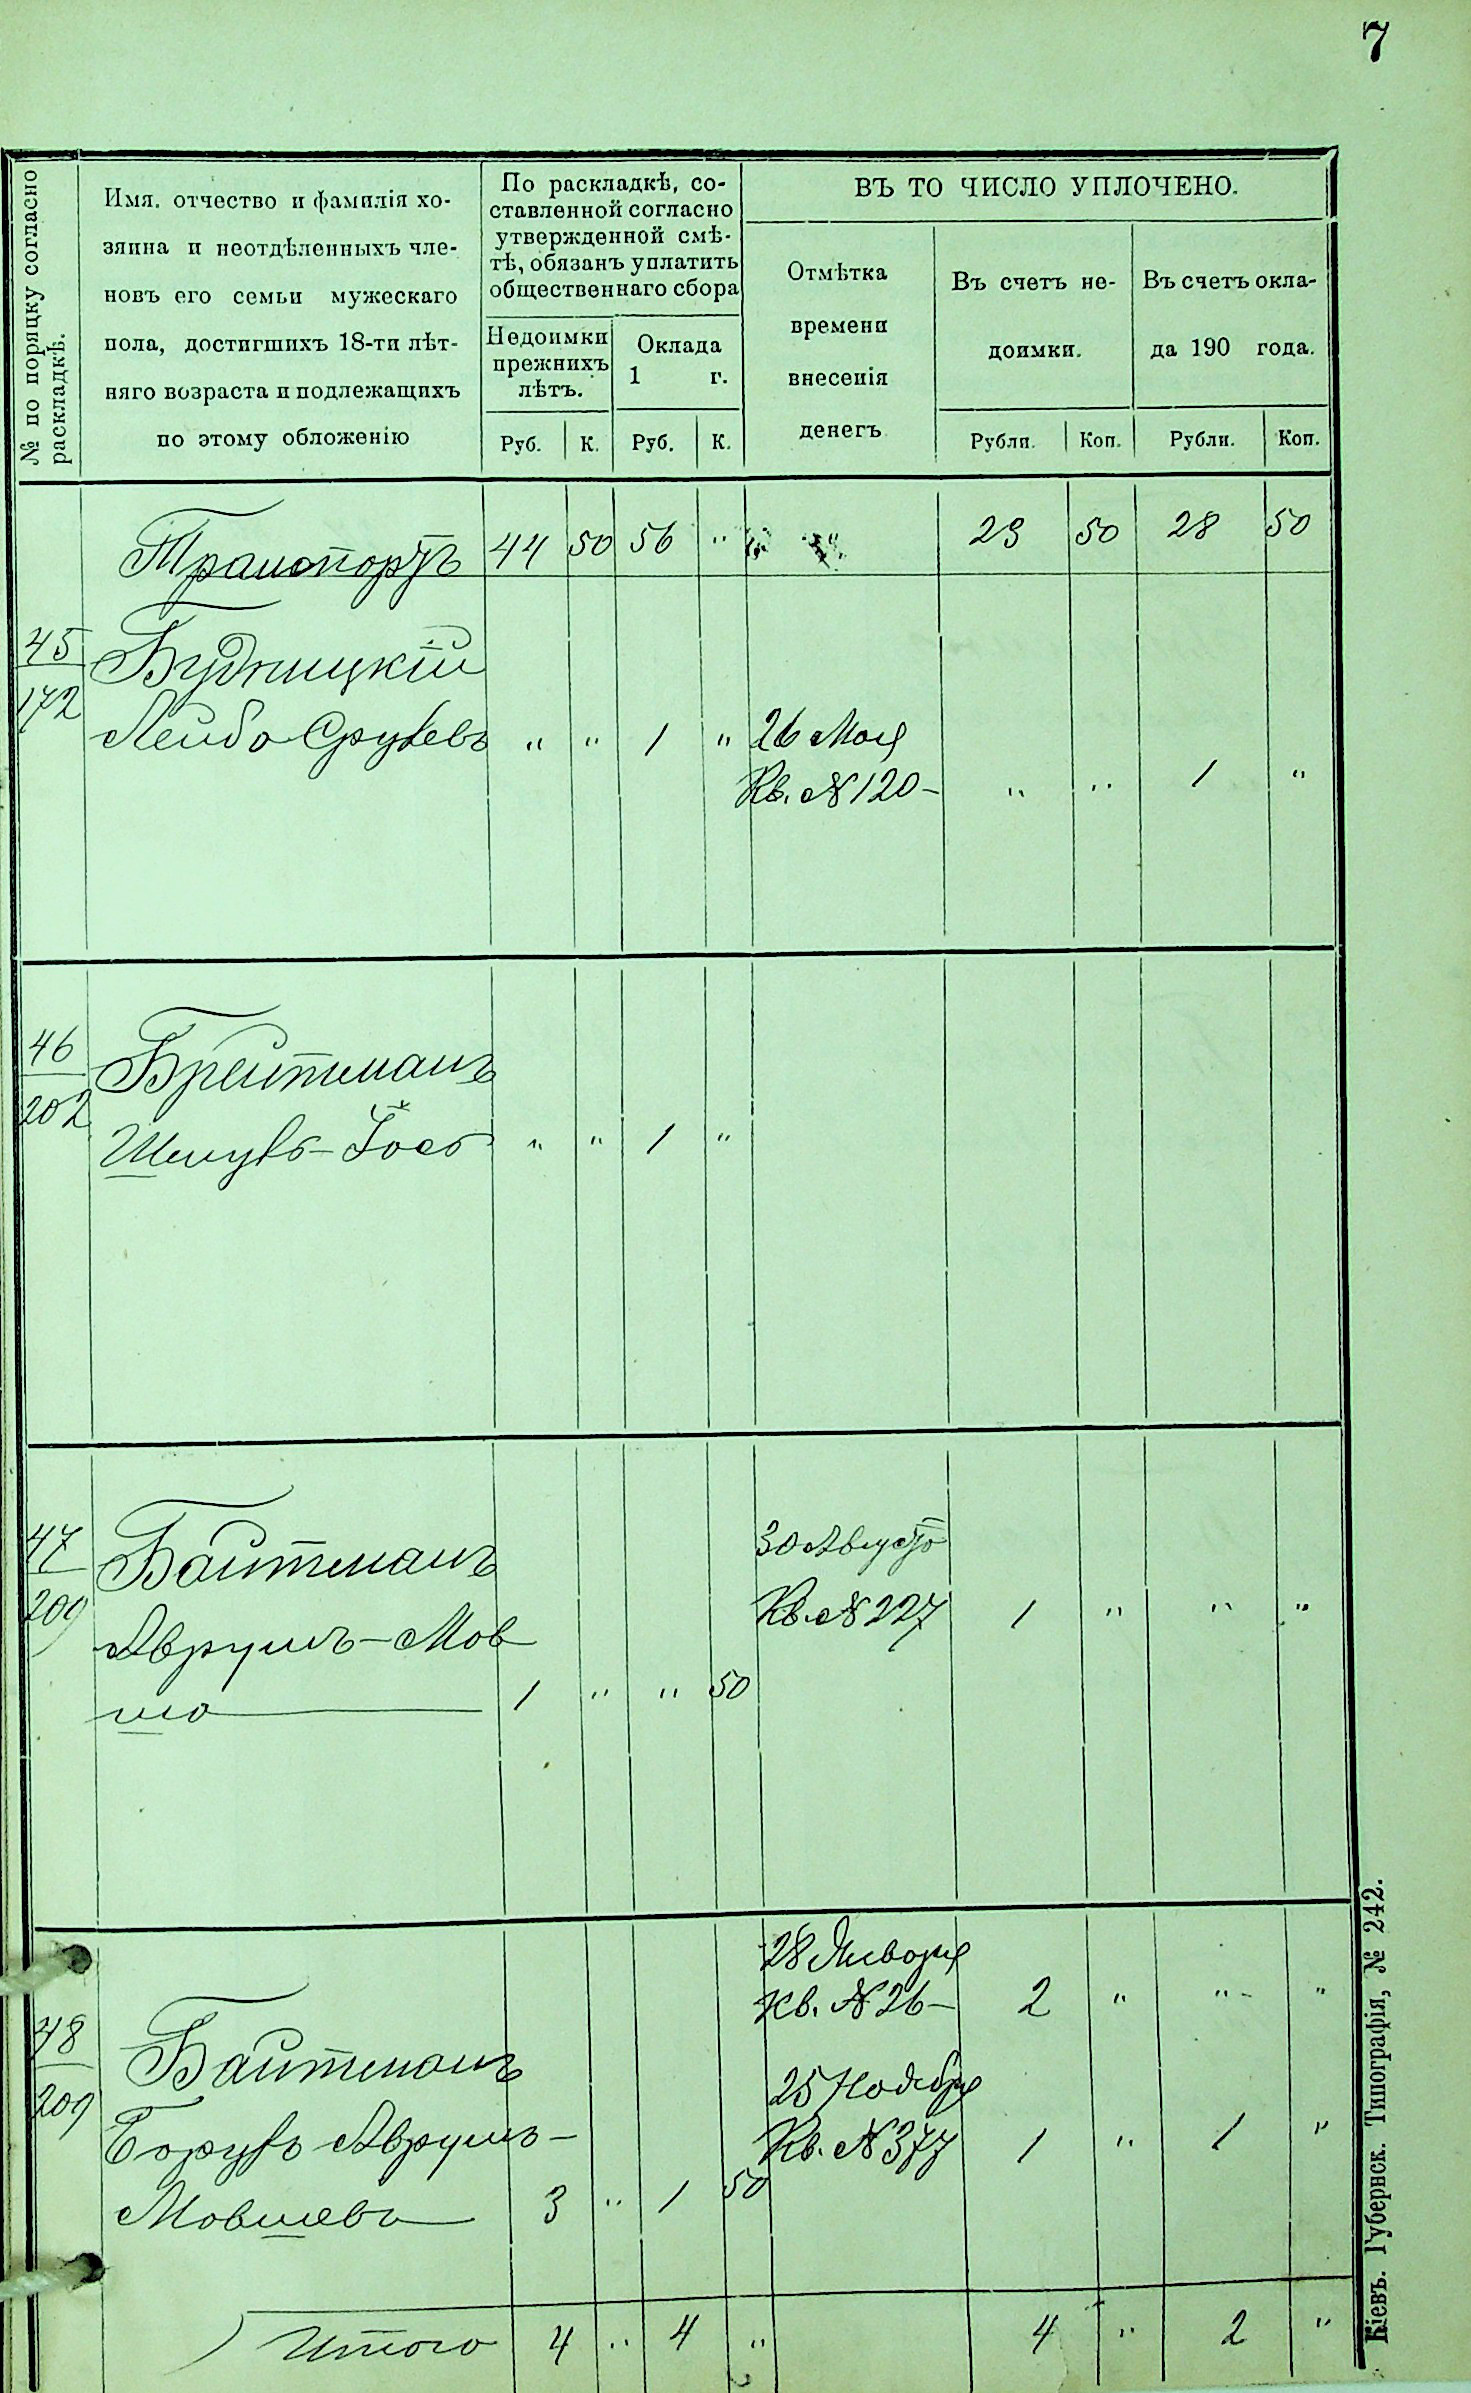 7
№ по порядку согласно
раскладкѣ.
Имя, отчество и фамилія хо-
зяина и неотдѣленныхъ чле-
новъ его семьи мужескаго
пола, достигшихъ 18-ти лѣт-
няго возраста и подлежащихъ
по этому обложенію
По раскладкѣ, со-
ставленной согласно
утвержденной смѣ-
тѣ, обязанъ уплатить
общественнаго сбора
Недоимки
прежнихъ
лѣтъ.
Оклада
1 г.
Руб. К. Руб. К.
ВЪ ТО ЧИСЛО УПЛОЧЕНО.
Отмѣтка
времени
внесенія
денегъ
Въ счетъ не-
доимки.
Въ счетъ окла-
да 190 года.
Рубли. Коп. Рубли. Коп.
Транспортъ 44 50 56 " 23 50 28 50
45
172
Будницкій
Лейба Срулевъ " " 1 "
26 Мая
Кв. № 120 - " " 1 "
46
202
Брейтманъ
Шмуль-Іось " " 1 "
47
209
Байтманъ
Аврумъ-Мов
ша 1 " " 50
30 Августа
Кв. № 227 1 " " "
48
209
Байтманъ
Борухъ Аврумъ-
Мовшевъ 3 " 1 50
28 Января
Кв. № 26 - 2 " " "
25 Ноября
Кв. № 377 1 " 1 "
Итого 4 " 4 " 4 " 2 "
Кіевъ. Губернск. Типографія, № 242.